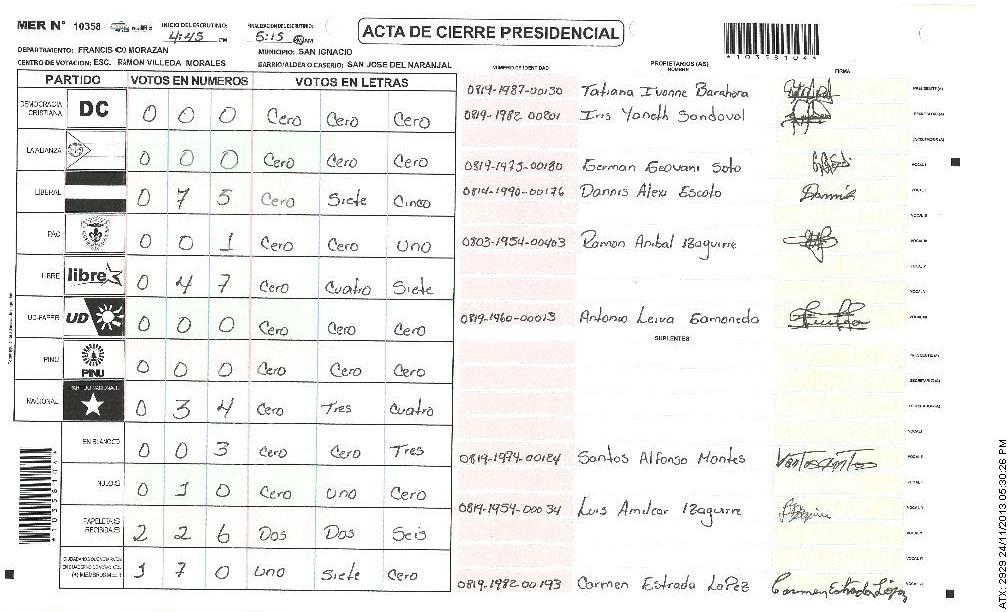 MER N° 10358
INICIO DEL ESCRUTINIO: 4:45 PM
FINALIZACION DEL ESCRUTINIO: 5:15 AM
ACTA DE CIERRE PRESIDENCIAL
*10358104*
DEPARTAMENTO: FRANCISCO MORAZAN MUNICIPIO: SAN IGNACIO
CENTRO DE VOTACION: ESC. RAMON VILLEDA MORALES BARRIO/ALDEA O CASERIO: SAN JOSE DEL NARANJAL
PARTIDO VOTOS EN NUMEROS VOTOS EN LETRAS
DEMOCRACIA CRISTIANA DC 0 0 0 Cero Cero Cero
LA ALIANZA 0 0 0 Cero Cero Cero
LIBERAL 0 7 5 Cero Siete Cinco
PAC 0 0 1 Cero Cero Uno
LIBRE libre 0 4 7 Cero Cuatro Siete
UD-FAPER UD 0 0 0 Cero Cero Cero
PINU PINU 0 0 0 Cero Cero Cero
NACIONAL PARTIDO NACIONAL 0 3 4 Cero Tres Cuatro
EN BLANCO 0 0 3 Cero Cero Tres
NULOS 0 1 0 Cero Uno Cero
PAPELETAS RECIBIDAS 2 2 6 Dos Dos Seis
1 7 0 Uno Siete Cero
NUMERO DE IDENTIDAD PROPIETARIOS (AS) NOMBRE FIRMA
0819-1987-00130 Tatiana Ivonne Barahona PRESIDENTE(A)
0819-1982-00201 Iris Yaneth Sandoval SECRETARIO(A)
ESCRUTADOR(A)
0819-1975-00180 German Geovani Soto VOCAL I
0814-1990-00176 Dannis Alexi Escoto Dannis VOCAL II
VOCAL III
0803-1954-00403 Ramon Anibal Izaguirre VOCAL IV
VOCAL V
VOCAL VI
0819-1960-00013 Antonio Leiva Gamoneda VOCAL VII
SUPLENTES
PRESIDENTE(A)
SECRETARIO(A)
ESCRUTADOR(A)
0819-1974-00124 Santos Alfonso Montes VOCAL I
0819-1954-00034 Luis Amilcar Izaguirre
0819-1982-00193 Carmen Estrada Lopez Carmen Estrada López
*10358104*
ATX-2929 24/11/2013 05:30:26 PM